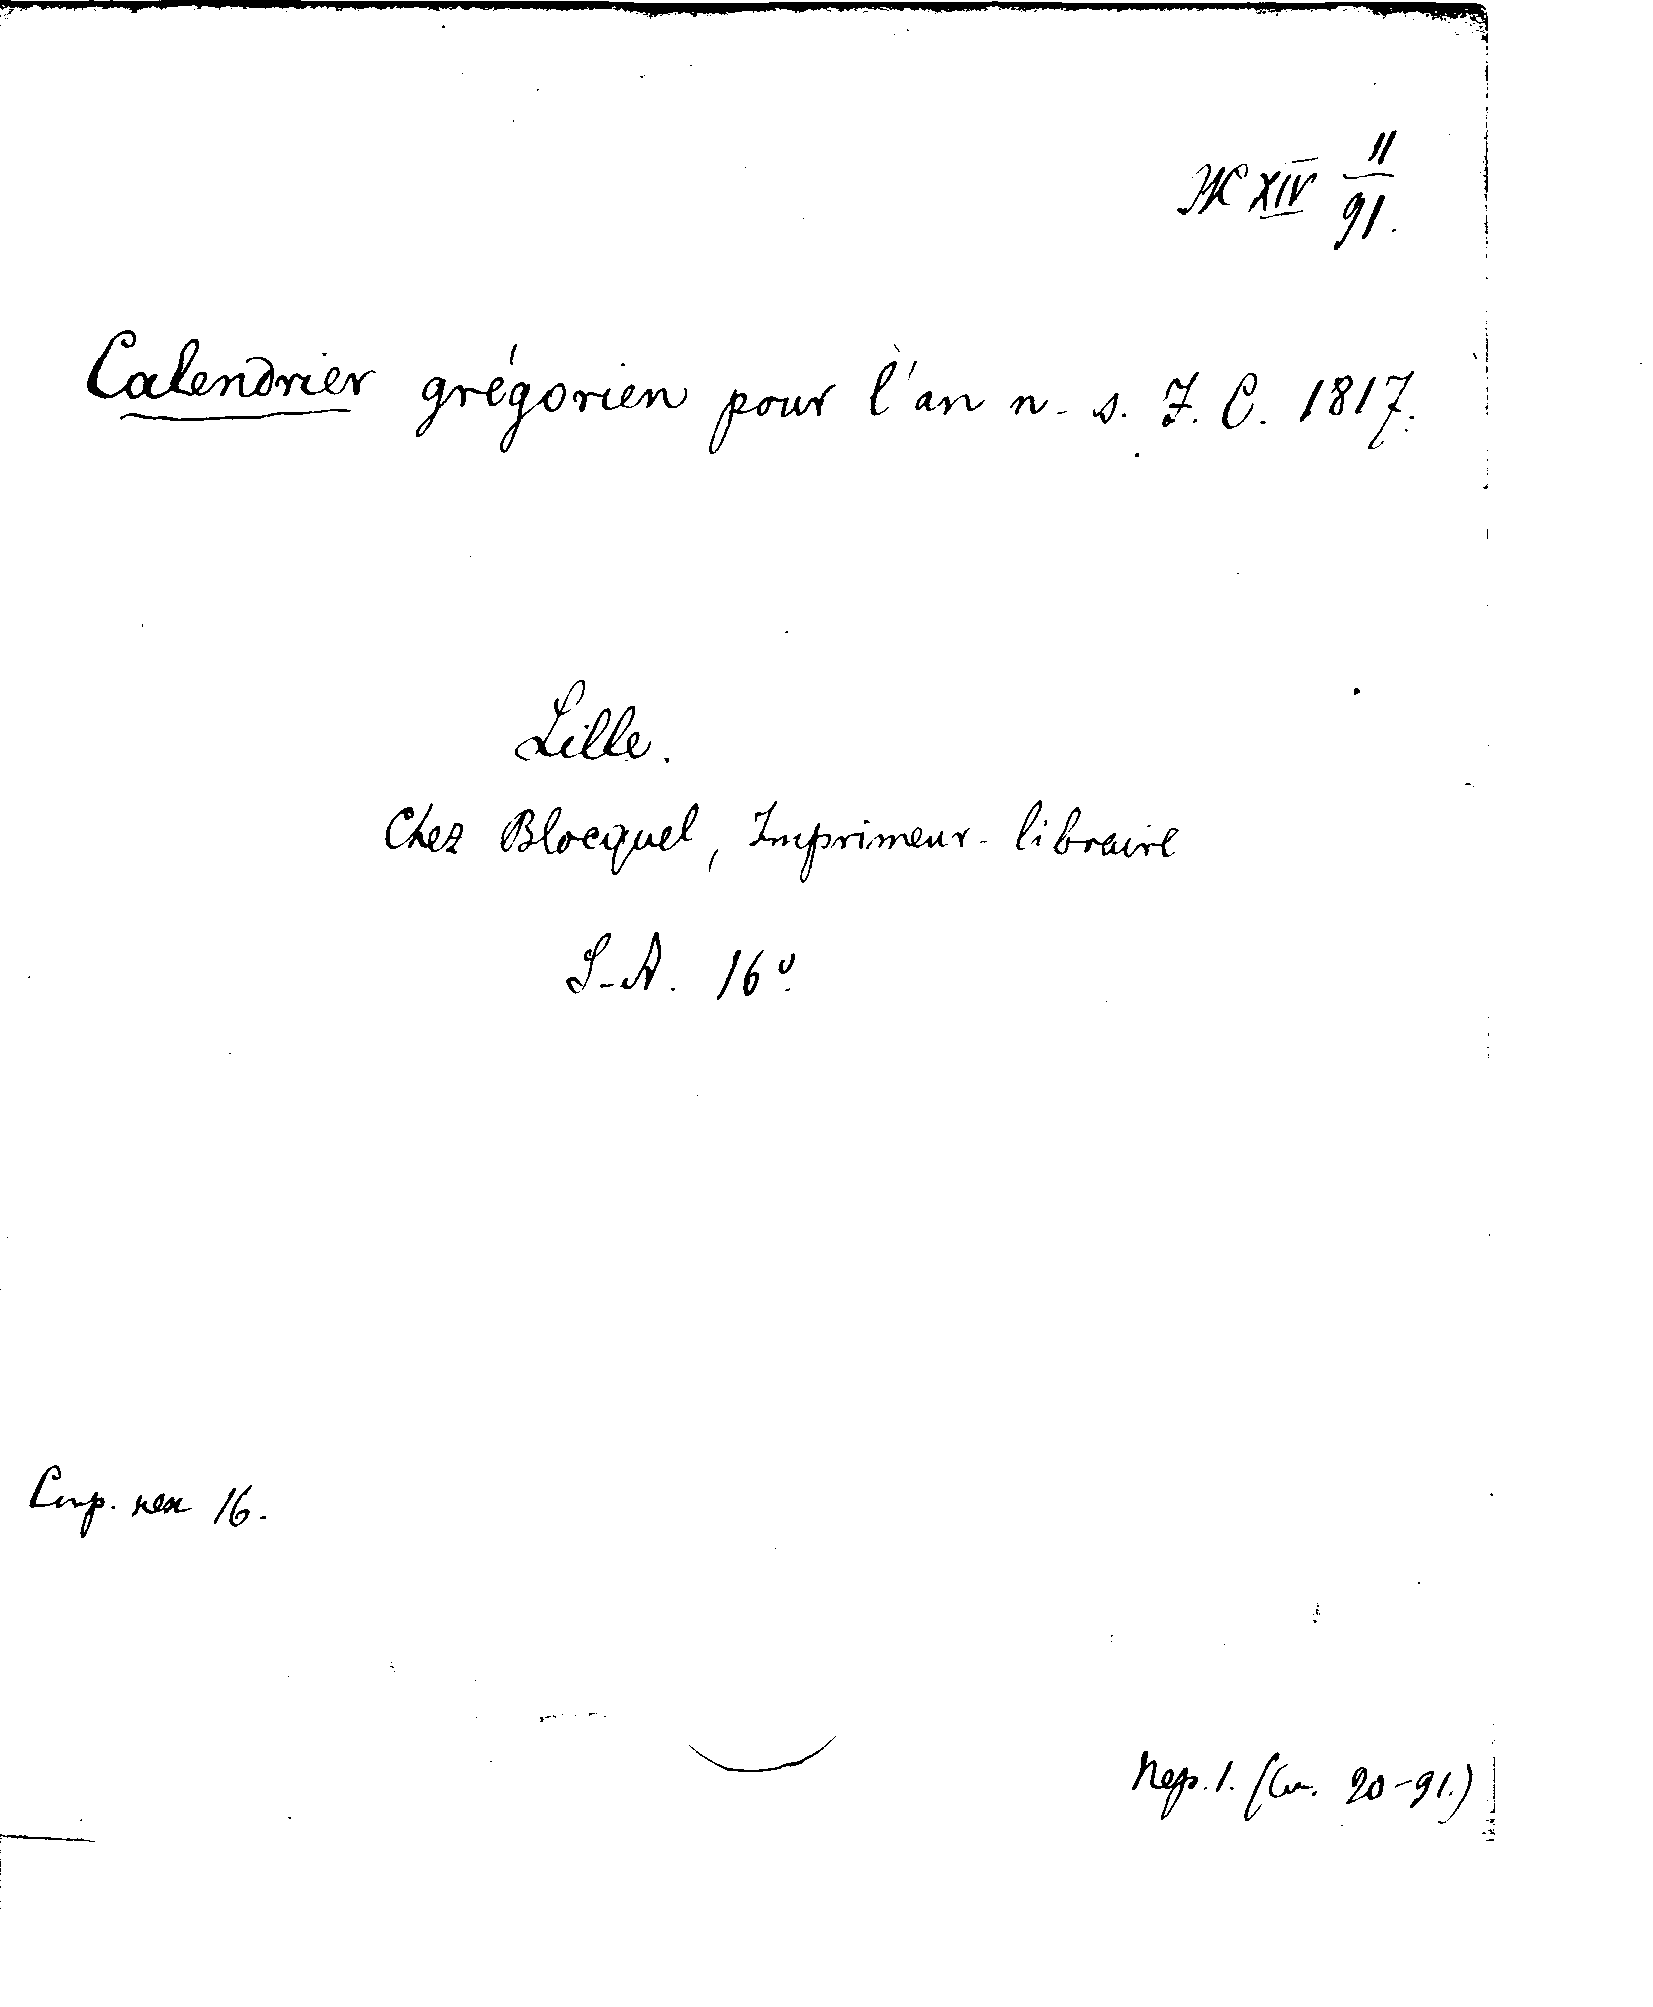 Ж XIV 11/91.
Calendrier grégorien pour l'an n. s. J. C. 1817.
Lille.
Chez Blocquel, Imprimeur-libraire
S-A. 16°.
нен 16.
Пер. 1. (См. 20-91.)